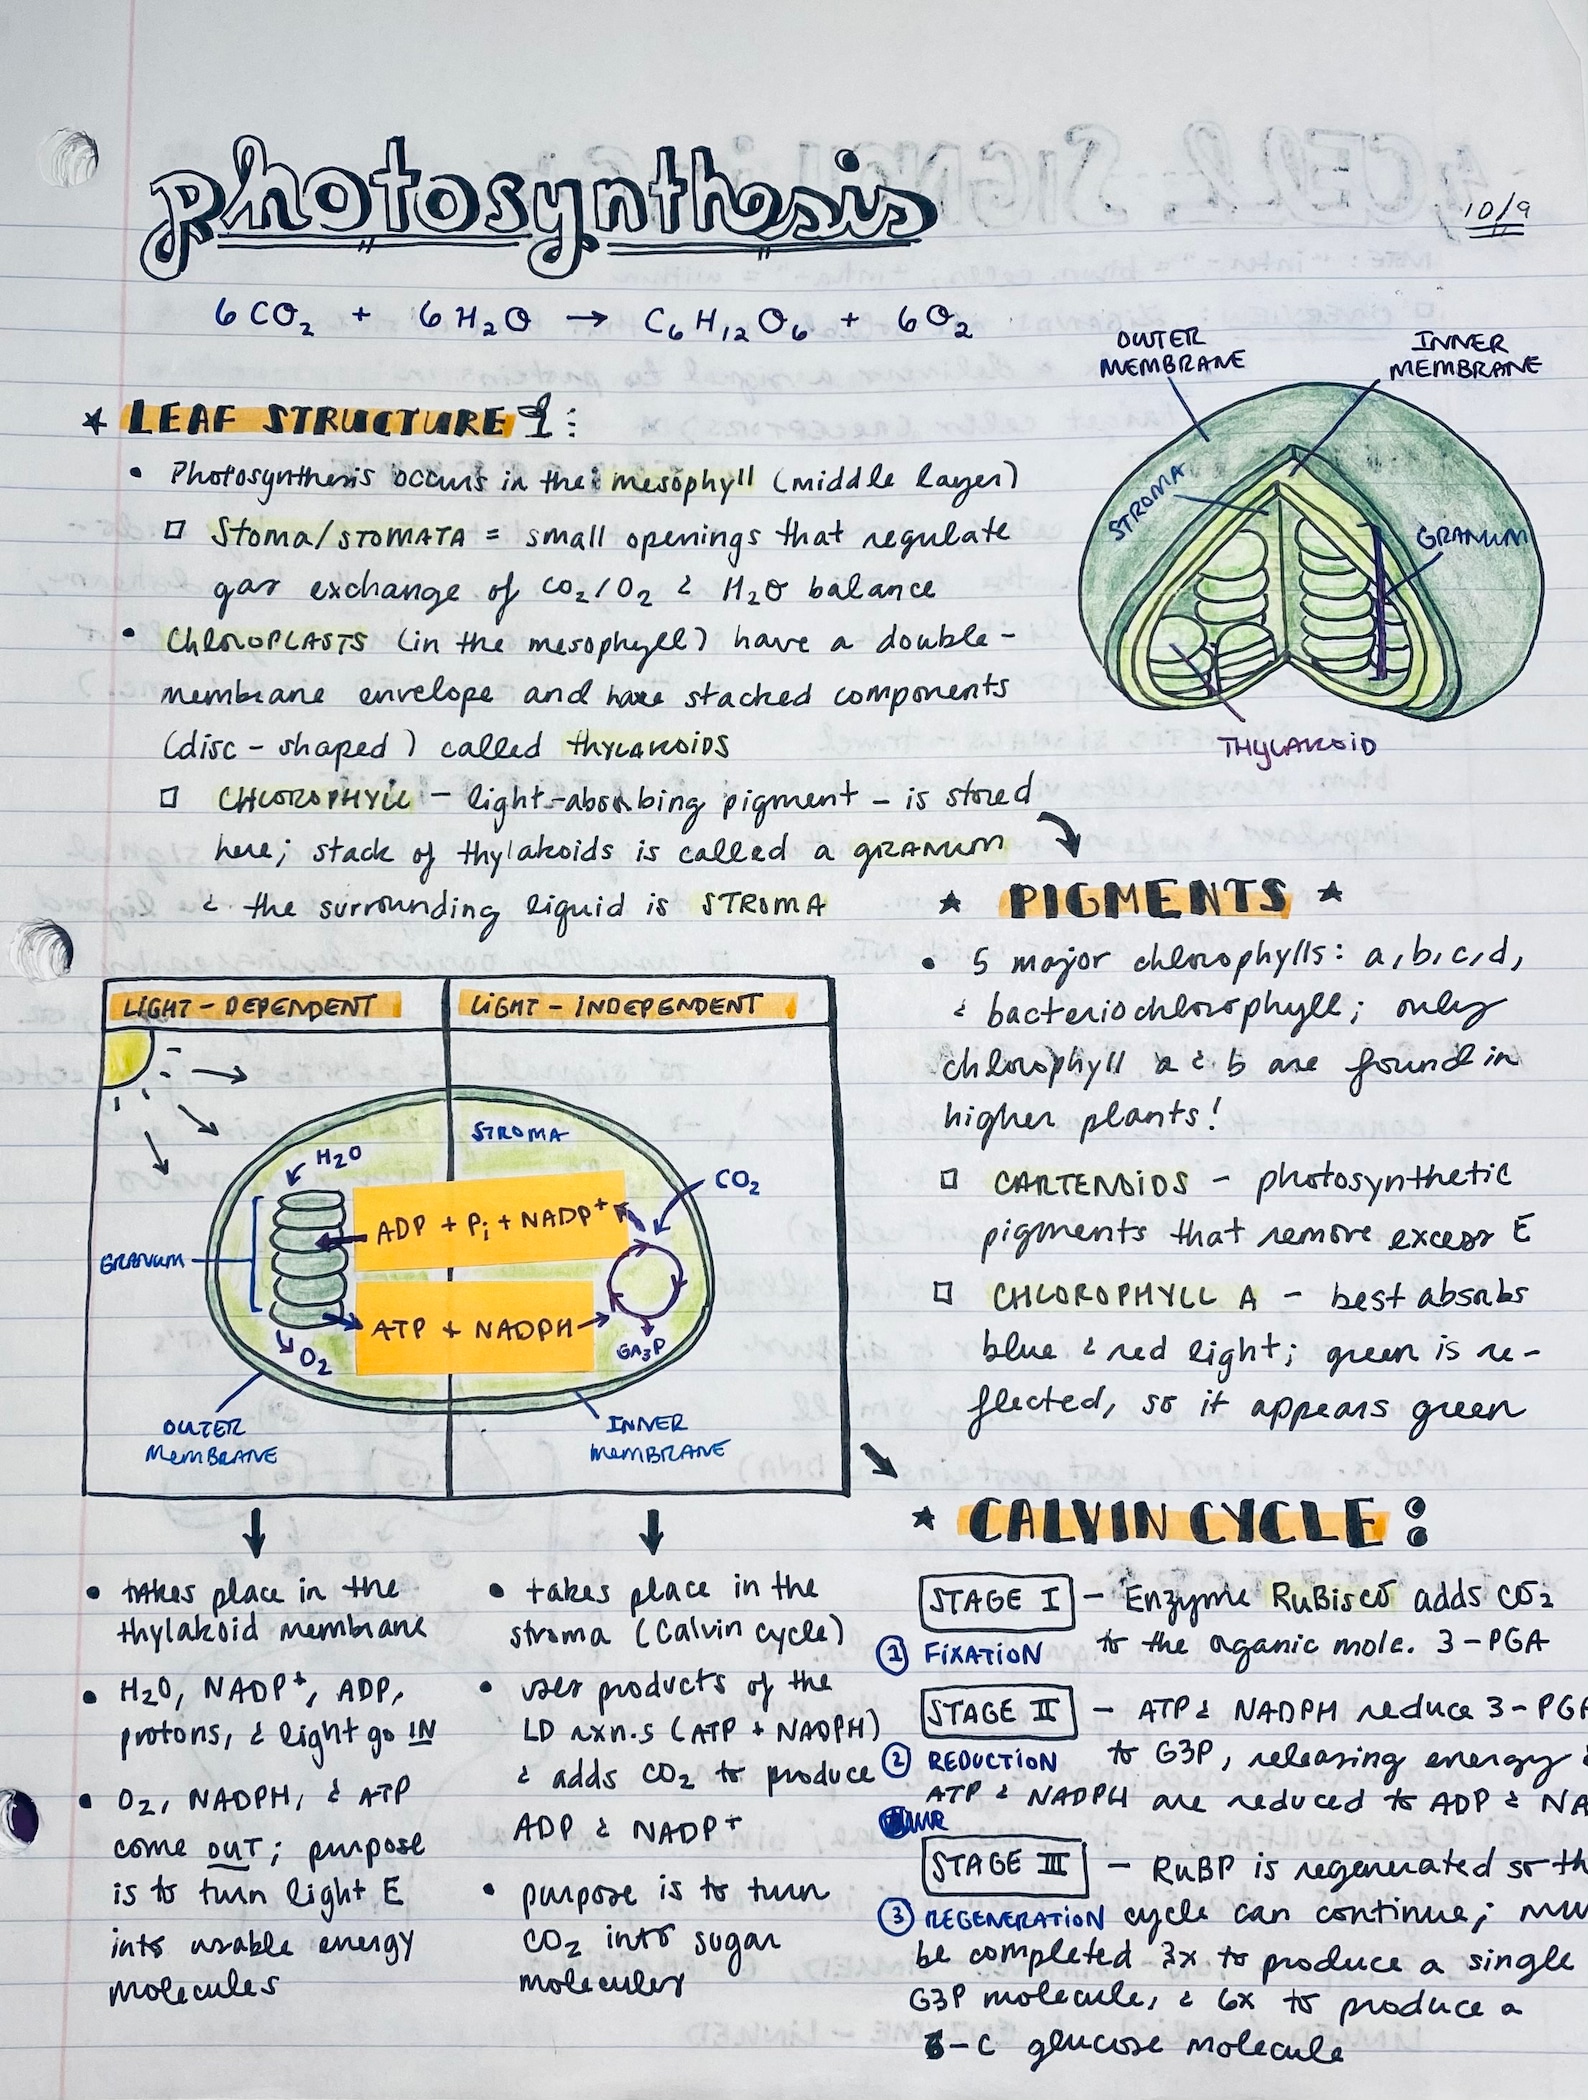 Photosynthesis
10/9
6CO₂ + 6H₂O → C₆H₁₂O₆ + 6O₂
OUTER
MEMBRANE
INNER
MEMBRANE
STROMA
GRANUM
THYLAKOID
★ LEAF STRUCTURE :
• Photosynthesis occurs in the mesophyll (middle layer)
□ Stoma/STOMATA = small openings that regulate
gas exchange of CO₂/O₂ & H₂O balance
• CHLOROPLASTS (in the mesophyll) have a double-
membrane envelope and have stacked components
(disc-shaped) called THYLAKOIDS
□ CHLOROPHYLL - light-absorbing pigment - is stored
here; stack of thylakoids is called a GRANUM
& the surrounding liquid is STROMA
★ PIGMENTS ★
• 5 major chlorophylls: a, b, c, d,
& bacteriochlorophyll; only
chlorophyll a & b are found in
higher plants!
□ CARTENOIDS - photosynthetic
pigments that remove excess E
□ CHLOROPHYLL A - best absorbs
blue & red light; green is re-
flected, so it appears green
LIGHT-DEPENDENT
LIGHT-INDEPENDENT
STROMA
H₂O
CO₂
ADP + Pi + NADP⁺
GRANUM
ATP + NADPH
GA3P
O₂
OUTER
MEMBRANE
INNER
MEMBRANE
• takes place in the
thylakoid membrane
• H₂O, NADP⁺, ADP,
protons, & light go IN
• O₂, NADPH, & ATP
come OUT; purpose
is to turn light E
into usable energy
molecules
• takes place in the
stroma (Calvin cycle)
• uses products of the
LD rxn.s (ATP + NADPH)
& adds CO₂ to produce
ADP & NADP⁺
• purpose is to turn
CO₂ into sugar
molecules
★ CALVIN CYCLE :
STAGE I - Enzyme RuBisCO adds CO₂
① FIXATION to the organic mole. 3-PGA
STAGE II - ATP & NADPH reduce 3-PGA
② REDUCTION to G3P, releasing energy &
ATP & NADPH are reduced to ADP & NA
STAGE III - RuBP is regenerated so th
③ REGENERATION cycle can continue; mu
be completed 3x to produce a single
G3P molecule, & 6x to produce a
6-C glucose molecule